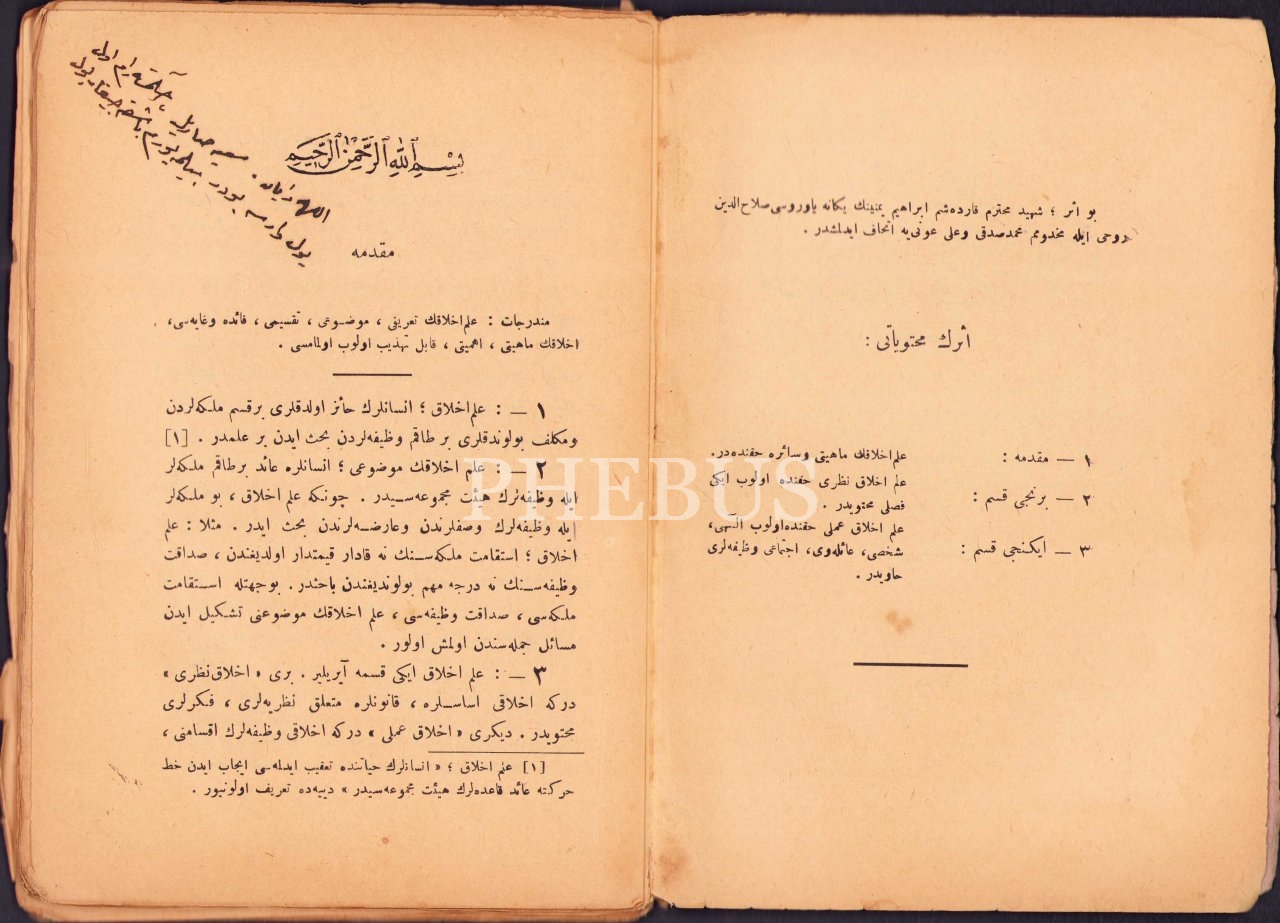 بو اثر ؛ شهيد محترم قارده‌شم ابراهيم يمنينك يكانه ياوروسى صلاح‌الدين
روحى ايله مخدومم محمدصدقى وعلى عونى‌يه اتحاف ايدلمشدر .
أثرك محتوياتى :
١ — مقدمه : علم‌اخلاقك ماهيتى وسائره حقنده‌در.
٢ — برنجى قسم : علم اخلاق نظرى حقنده اولوب ايكى
فصلى محتويدر .
٣ — ايكنجى قسم : علم اخلاق عملى حقنده‌اولوب الٓهى،
شخصى، عائله‌وى، اجتماعى وظيفه‌لرى
حاويدر .
اللهه دايان . سعيه صاريل ، حكمته رام اول
يول وارسه بودر بيلميورم باشقه چيقار يول
بِسْمِ اللهِ الرَّحْمٰنِ الرَّحِيمِ
مقدمه
مندرجات : علم‌اخلاقك تعريفى ، موضـوعى ، تقسيمى ، فائده وغايه‌سى،
اخلاقك ماهيتى ، اهميتى ، قابل تهذيب اولوب اولمامسى .
١ — : علم‌اخلاق ؛ انسانلرك حائز اولدقلرى برقسم ملكه‌لردن
ومكلف بولوندقلرى بر طاقم وظيفه‌لردن بحث ايدن بر علمدر . [١]
٢ — : علم اخلاقك موضوعى ؛ انسانلره عائد برطاقم ملكه‌لر
ايله وظيفه‌لرك هيئت مجموعه‌سـيدر . چونكه علم اخلاق ، بو ملكه‌لر
ايله وظيفه‌لرك وصفلرندن وعارضـه‌لرندن بحث ايدر . مثلا : علم
اخلاق ؛ استقامت ملكه‌سـنك نه قادار قيمتدار اولديغندن ، صداقت
وظيفه‌سـنك نه درجه مهم بولونديغندن باحثدر . بوجهتله اسـتقامت
ملكه‌سى ، صداقت وظيفه‌سى ، علم اخلاقك موضوعنى تشكيل ايدن
مسائل جمله‌سندن اولمش اولور .
٣ — : علم اخلاق ايكى قسمه آيريلير . برى « اخلاق‌نظرى »
دركه اخلاقى اساسـلره ، قانونلره متعلق نظريه‌لرى ، فكرلرى
محتويدر . ديكرى « اخلاق عملى » دركه اخلاقى وظيفه‌لرك اقسامنى ،
[١] علم اخلاق ؛ « انسانلرك حياتنده تعقيب ايدلمه‌سى ايجاب ايدن خط
حركته عائد قاعده‌لرك هيئت مجموعه‌سيدر » دييه‌ده تعريف اولونيور .
PHEBUS